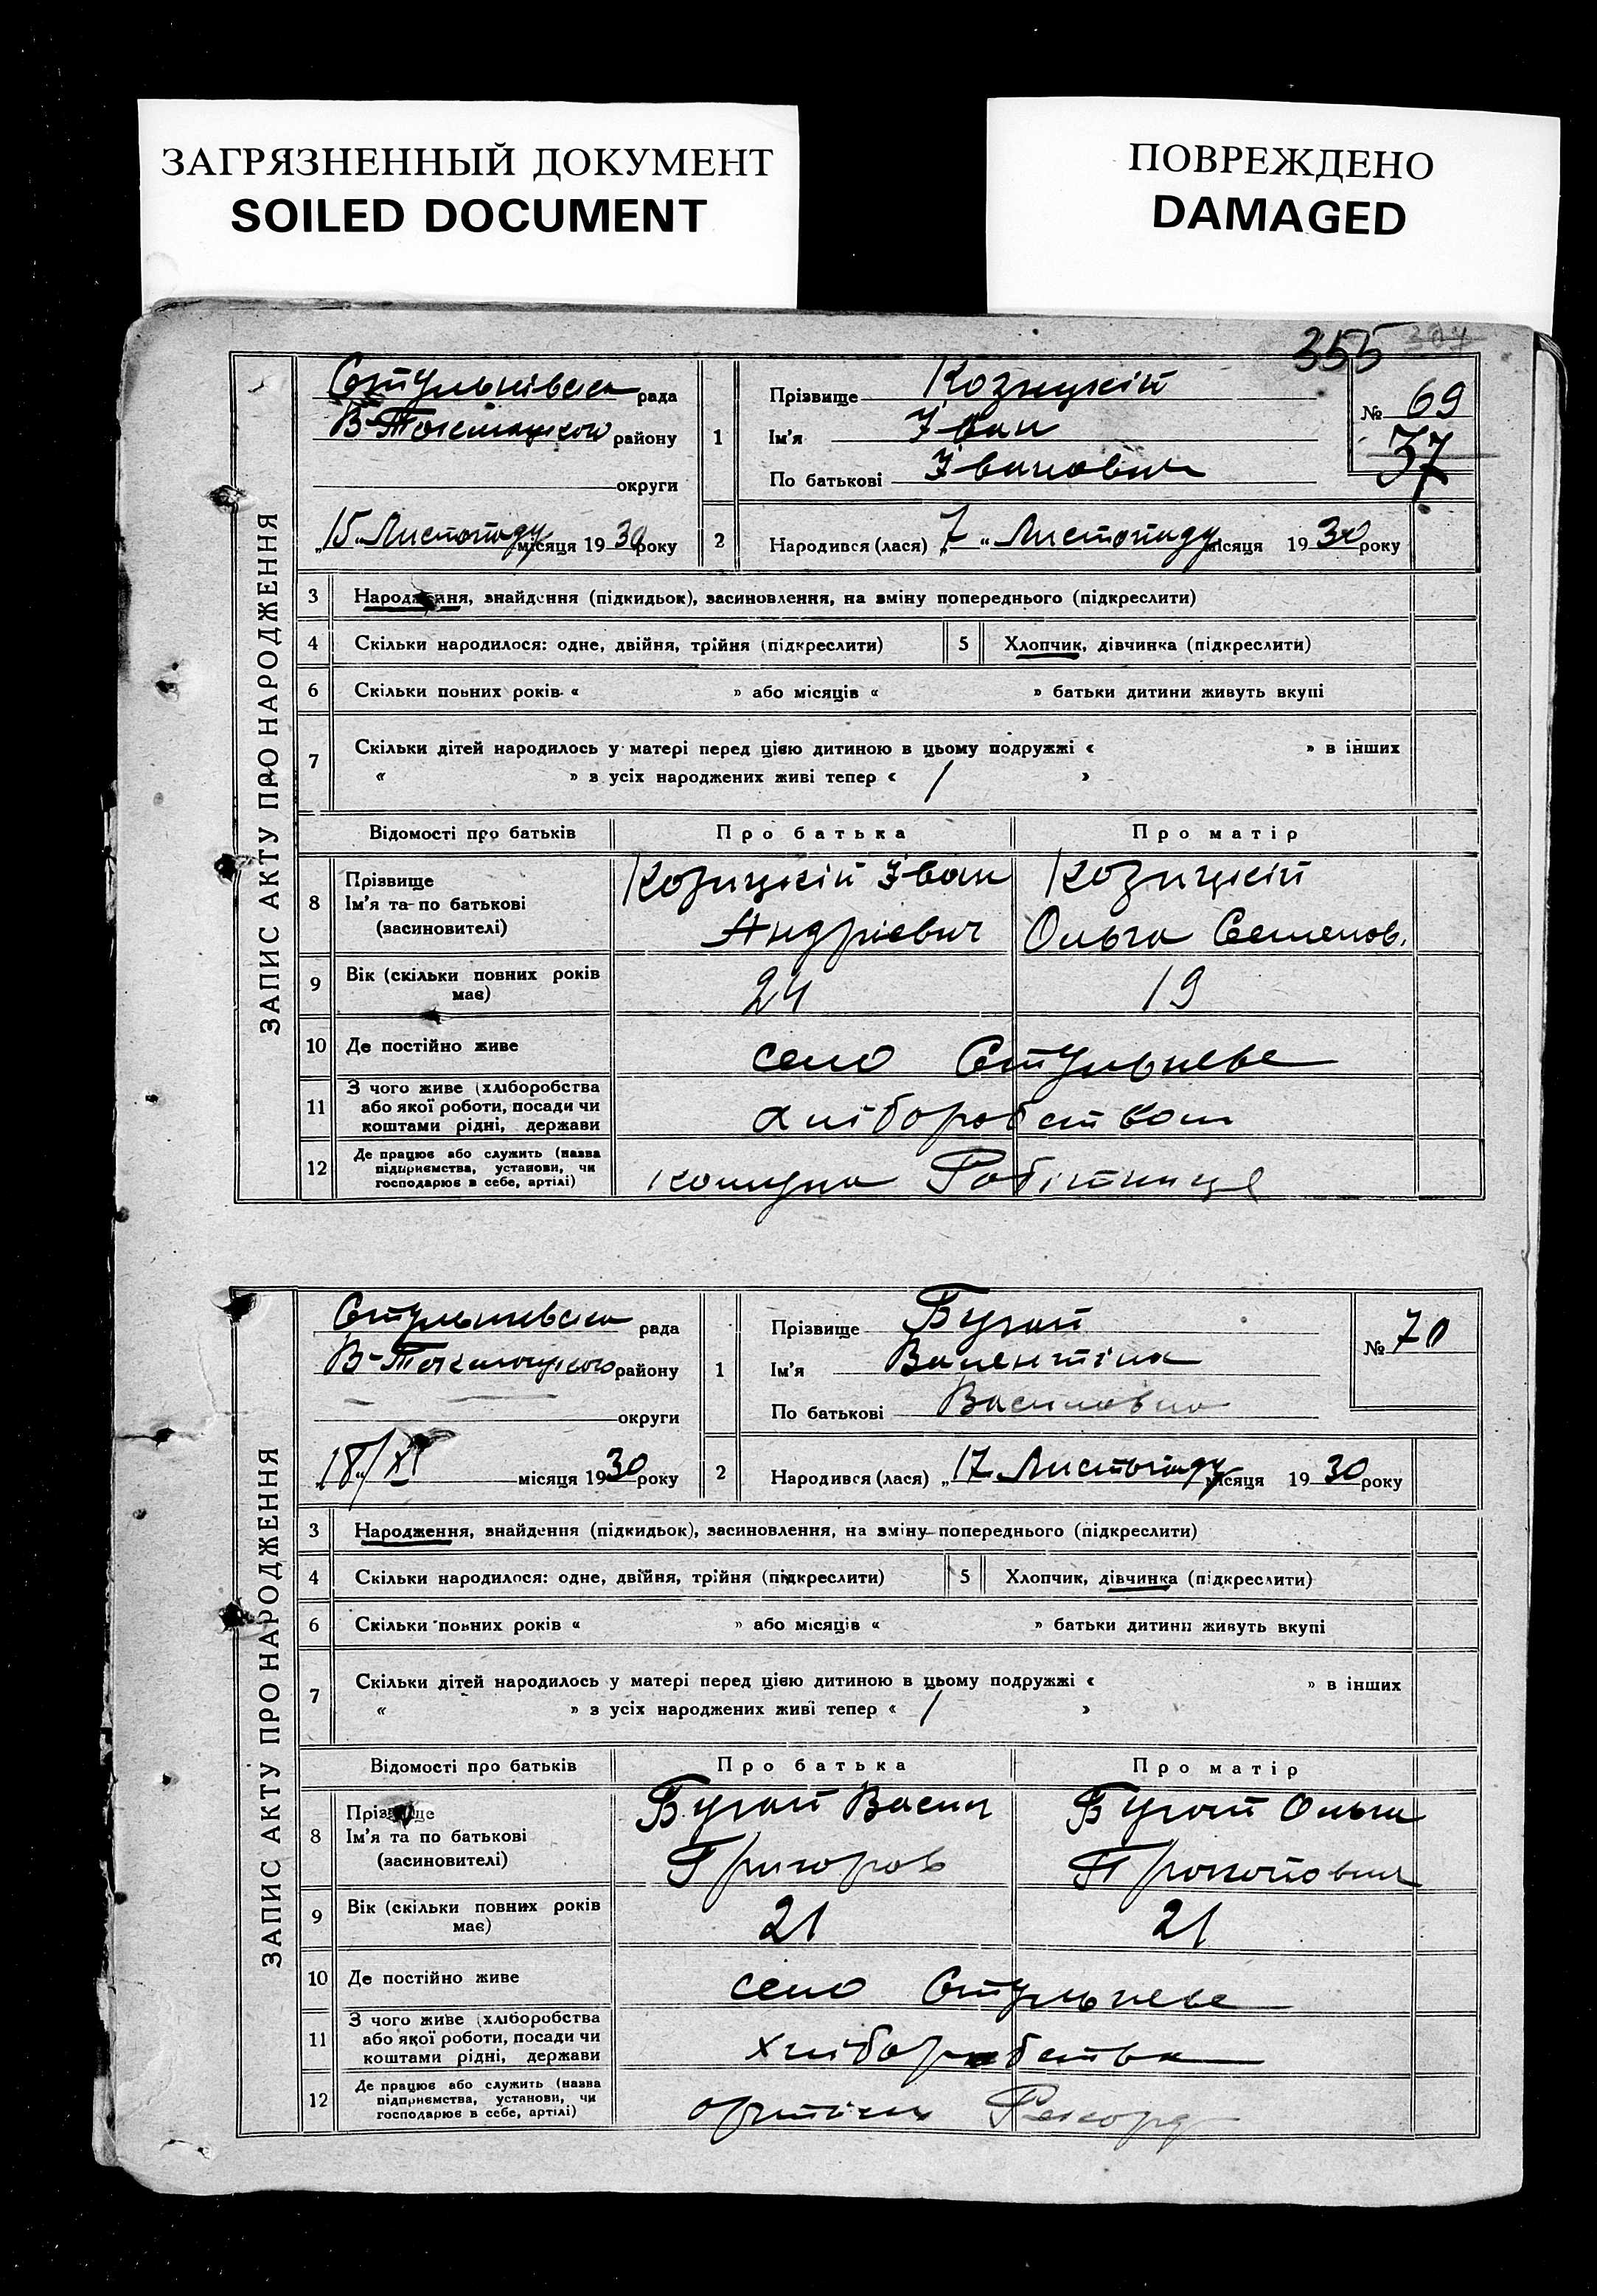 ЗАГРЯЗНЕННЫЙ ДОКУМЕНТ
SOILED DOCUMENT
ПОВРЕЖДЕНО
DAMAGED
355
ЗАПИС АКТУ ПРО НАРОДЖЕННЯ
Стульнівська рада
В-Токмацького району
округи
„15„ Листопаду місяця 1930 року
1 Прізвище Козицкій
Ім'я Іван
По батькові Іванович
№ 69
37
2 Народився (лася) „7„ Листопаду місяця 1930 року
3 Народження, знайдення (підкидьок), засиновлення, на зміну попереднього (підкреслити)
4 Скільки народилося: одне, двійня, трійня (підкреслити) 5 Хлопчик, дівчинка (підкреслити)
6 Скільки повних років « » або місяців « » батьки дитини живуть вкупі
7 Скільки дітей народилось у матері перед цією дитиною в цьому подружжі « » в інших
« » з усіх народжених живі тепер « / »
Відомості про батьків Про батька Про матір
8 Прізвище
Ім'я та по батькові
(засиновителі)
Козицкій Іван Козицкій
Андрієвич Ольга Семенов.
9 Вік (скільки повних років
має)
24 19
10 Де постійно живе село Стульневе
11 З чого живе (хліборобства
або якої роботи, посади чи
коштами рідні, держави
хліборобством
12 Де працює або служить (назва
підприємства, установи, чи
господарює в себе, артілі)
комуна Робітниця
ЗАПИС АКТУ ПРО НАРОДЖЕННЯ
Стульневська рада
В-Токмацького району
округи
„18„/XI місяця 1930 року
1 Прізвище Бугай
Ім'я Валентіна
По батькові Василовна
№ 70
2 Народився (лася) „17„ Листопаду місяця 1930 року
3 Народження, знайдення (підкидьок), засиновлення, на зміну попереднього (підкреслити)
4 Скільки народилося: одне, двійня, трійня (підкреслити) 5 Хлопчик, дівчинка (підкреслити)
6 Скільки повних років « » або місяців « » батьки дитини живуть вкупі
7 Скільки дітей народилось у матері перед цією дитиною в цьому подружжі « » в інших
« » з усіх народжених живі тепер « / »
Відомості про батьків Про батька Про матір
8 Прізвище
Ім'я та по батькові
(засиновителі)
Бугай Васил Бугай Ольга
Григоров Прокоповна
9 Вік (скільки повних років
має)
21 21
10 Де постійно живе село Стульневе
11 З чого живе (хліборобства
або якої роботи, посади чи
коштами рідні, держави
хліборобства
12 Де працює або служить (назва
підприємства, установи, чи
господарює в себе, артілі)
Рекорд